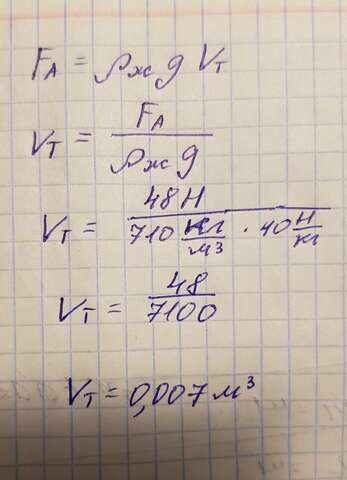 F_A = ρж g V_T
V_T = F_A / ρж g
V_T = 48 Н / 710 кг/м³ · 10 Н/кг
V_T = 48 / 7100
V_T = 0,007 м³